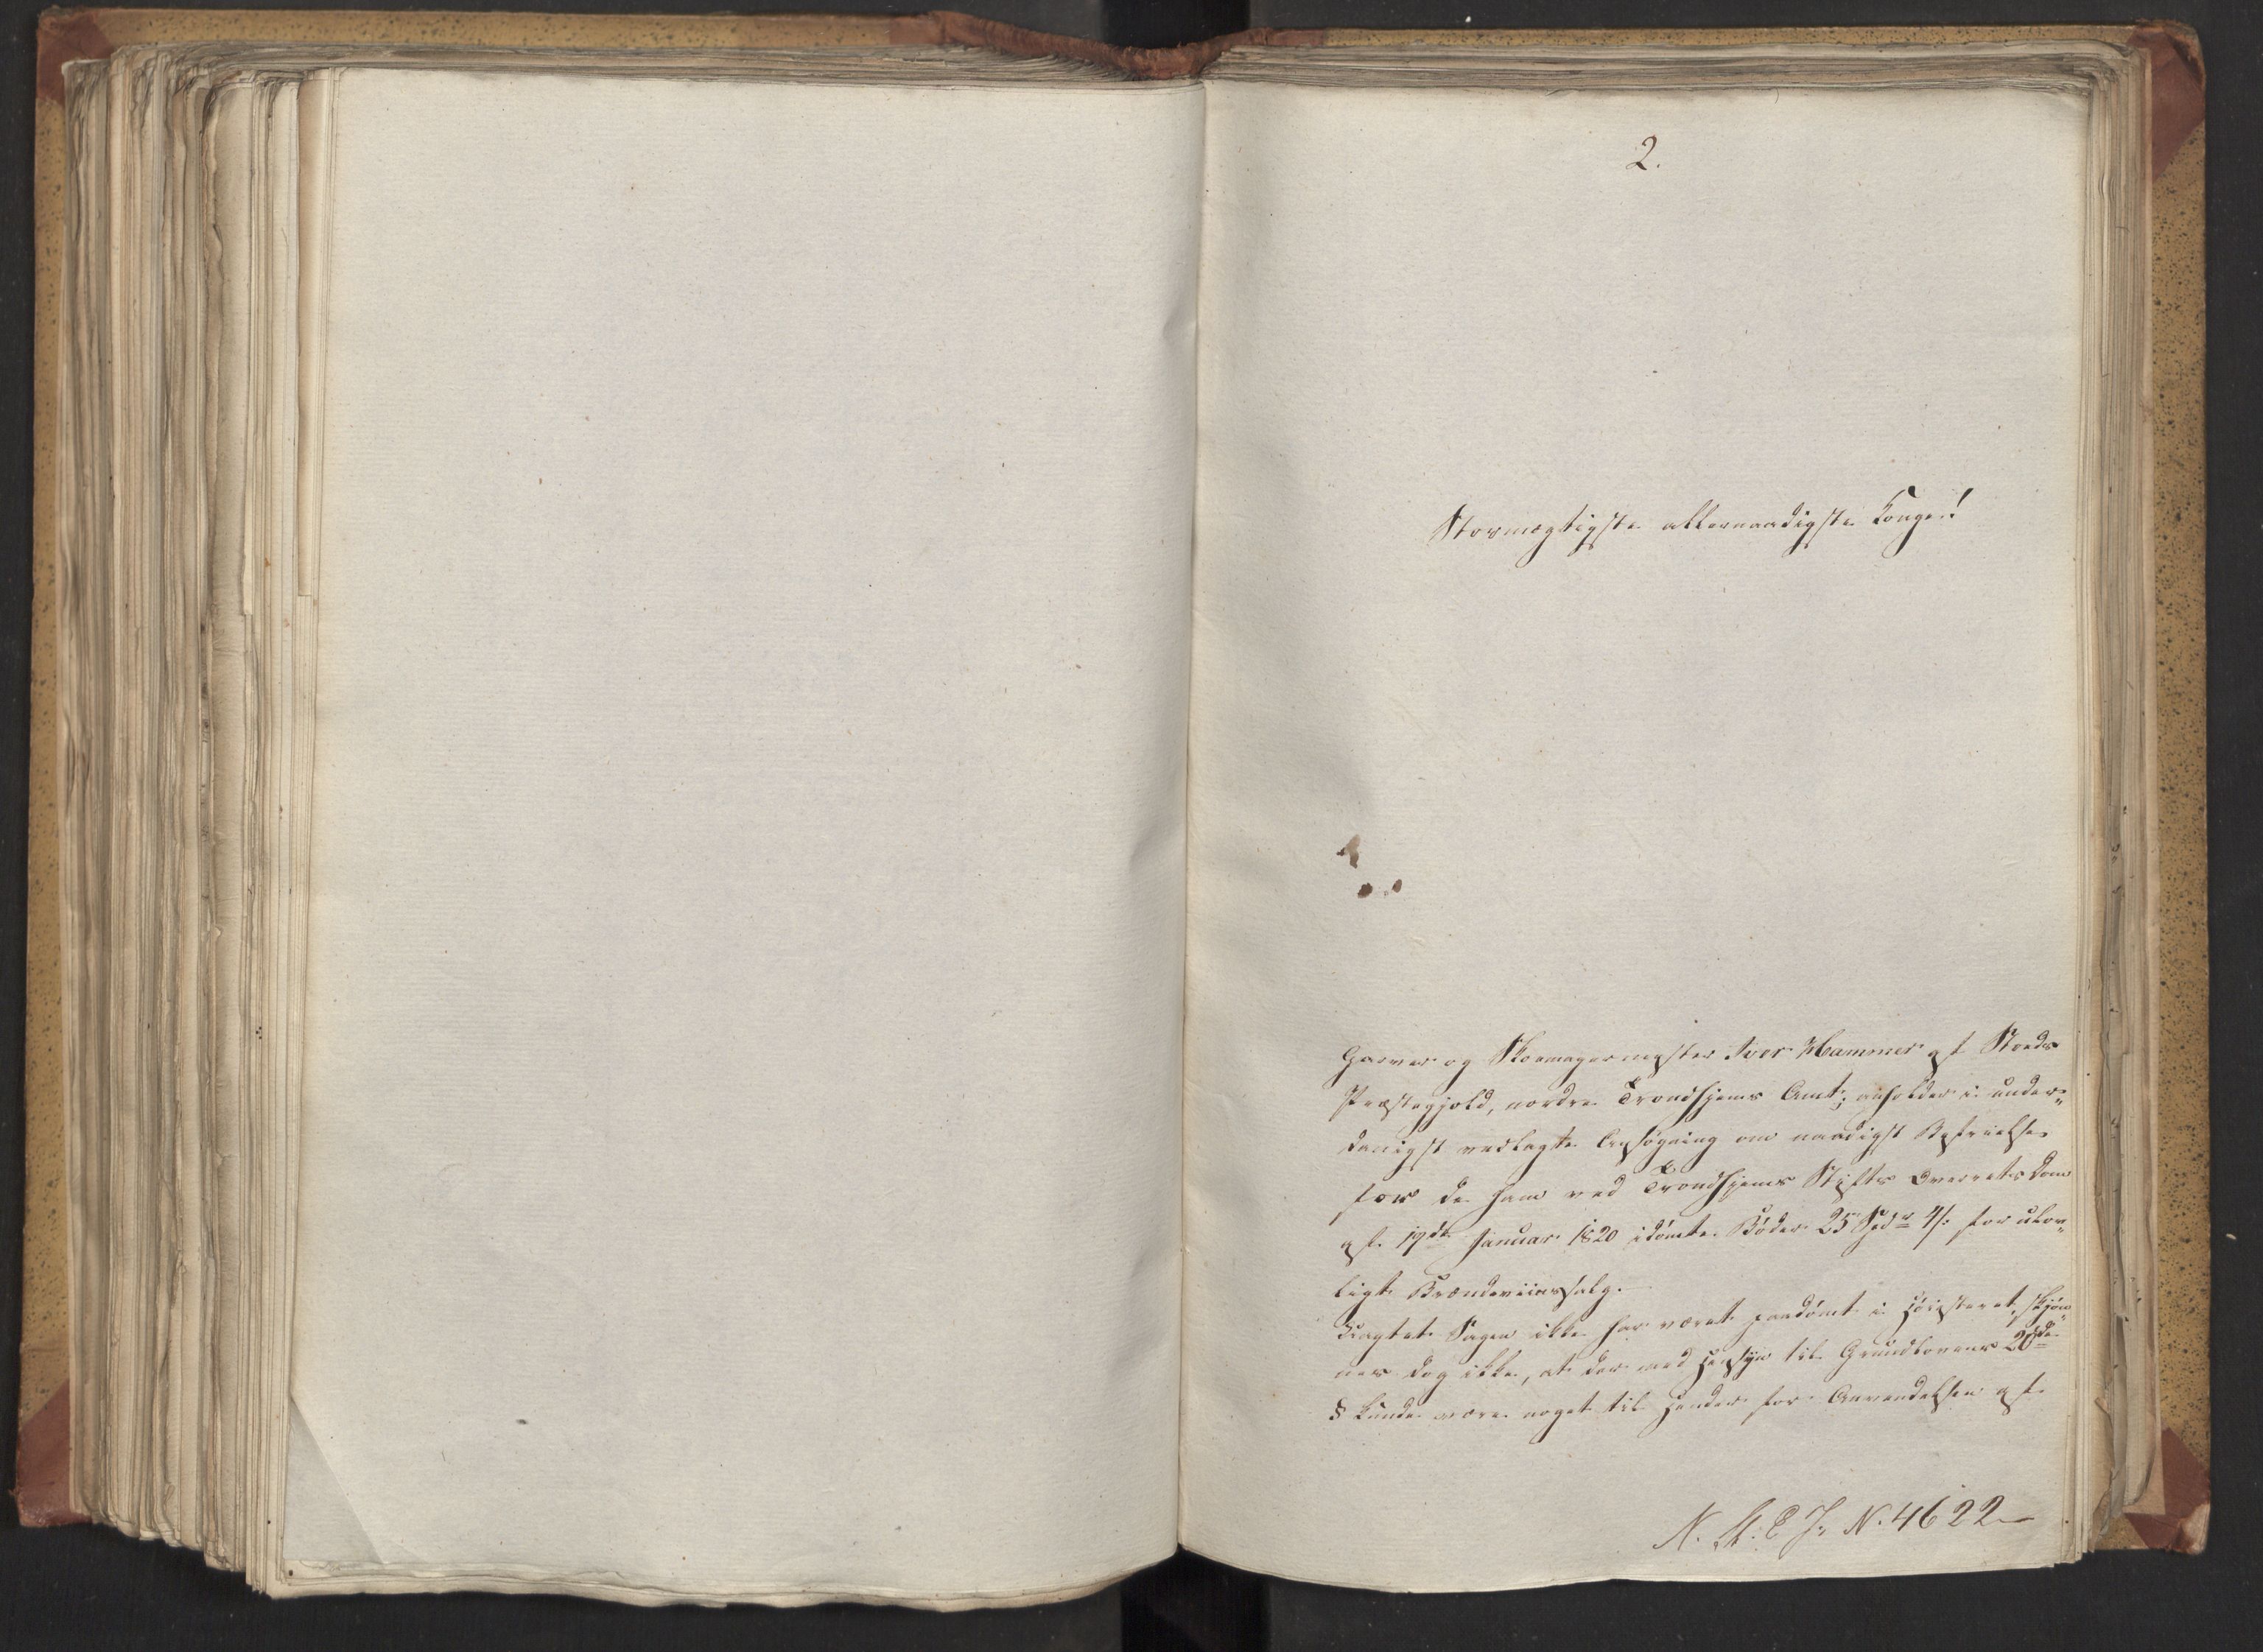 2.
Stormægtigste allernaadigste Konge!
Garver og Skoemagermester Iver Hammer af Stods
Præstegjeld, nordre Trondhjems Amt, anholder i under„
danigst vedlagte Ansøgning om naadigst Befrielse
for de ham ved Trondhjems Stifts Overrets Dom
af 17de Januar 1820 idømte Bøder 25 Spdr 4/: for ulov„
ligt Brændeviinssalg.
Uagtet Sagen ikke har været paadømt i Høiesteret, skjøn„
nes dog ikke, at der med Hensyn til Grundlovens 20de
§ kunde være noget til Hinder for Anvendelsen af
N. St. E. J: N. 4622